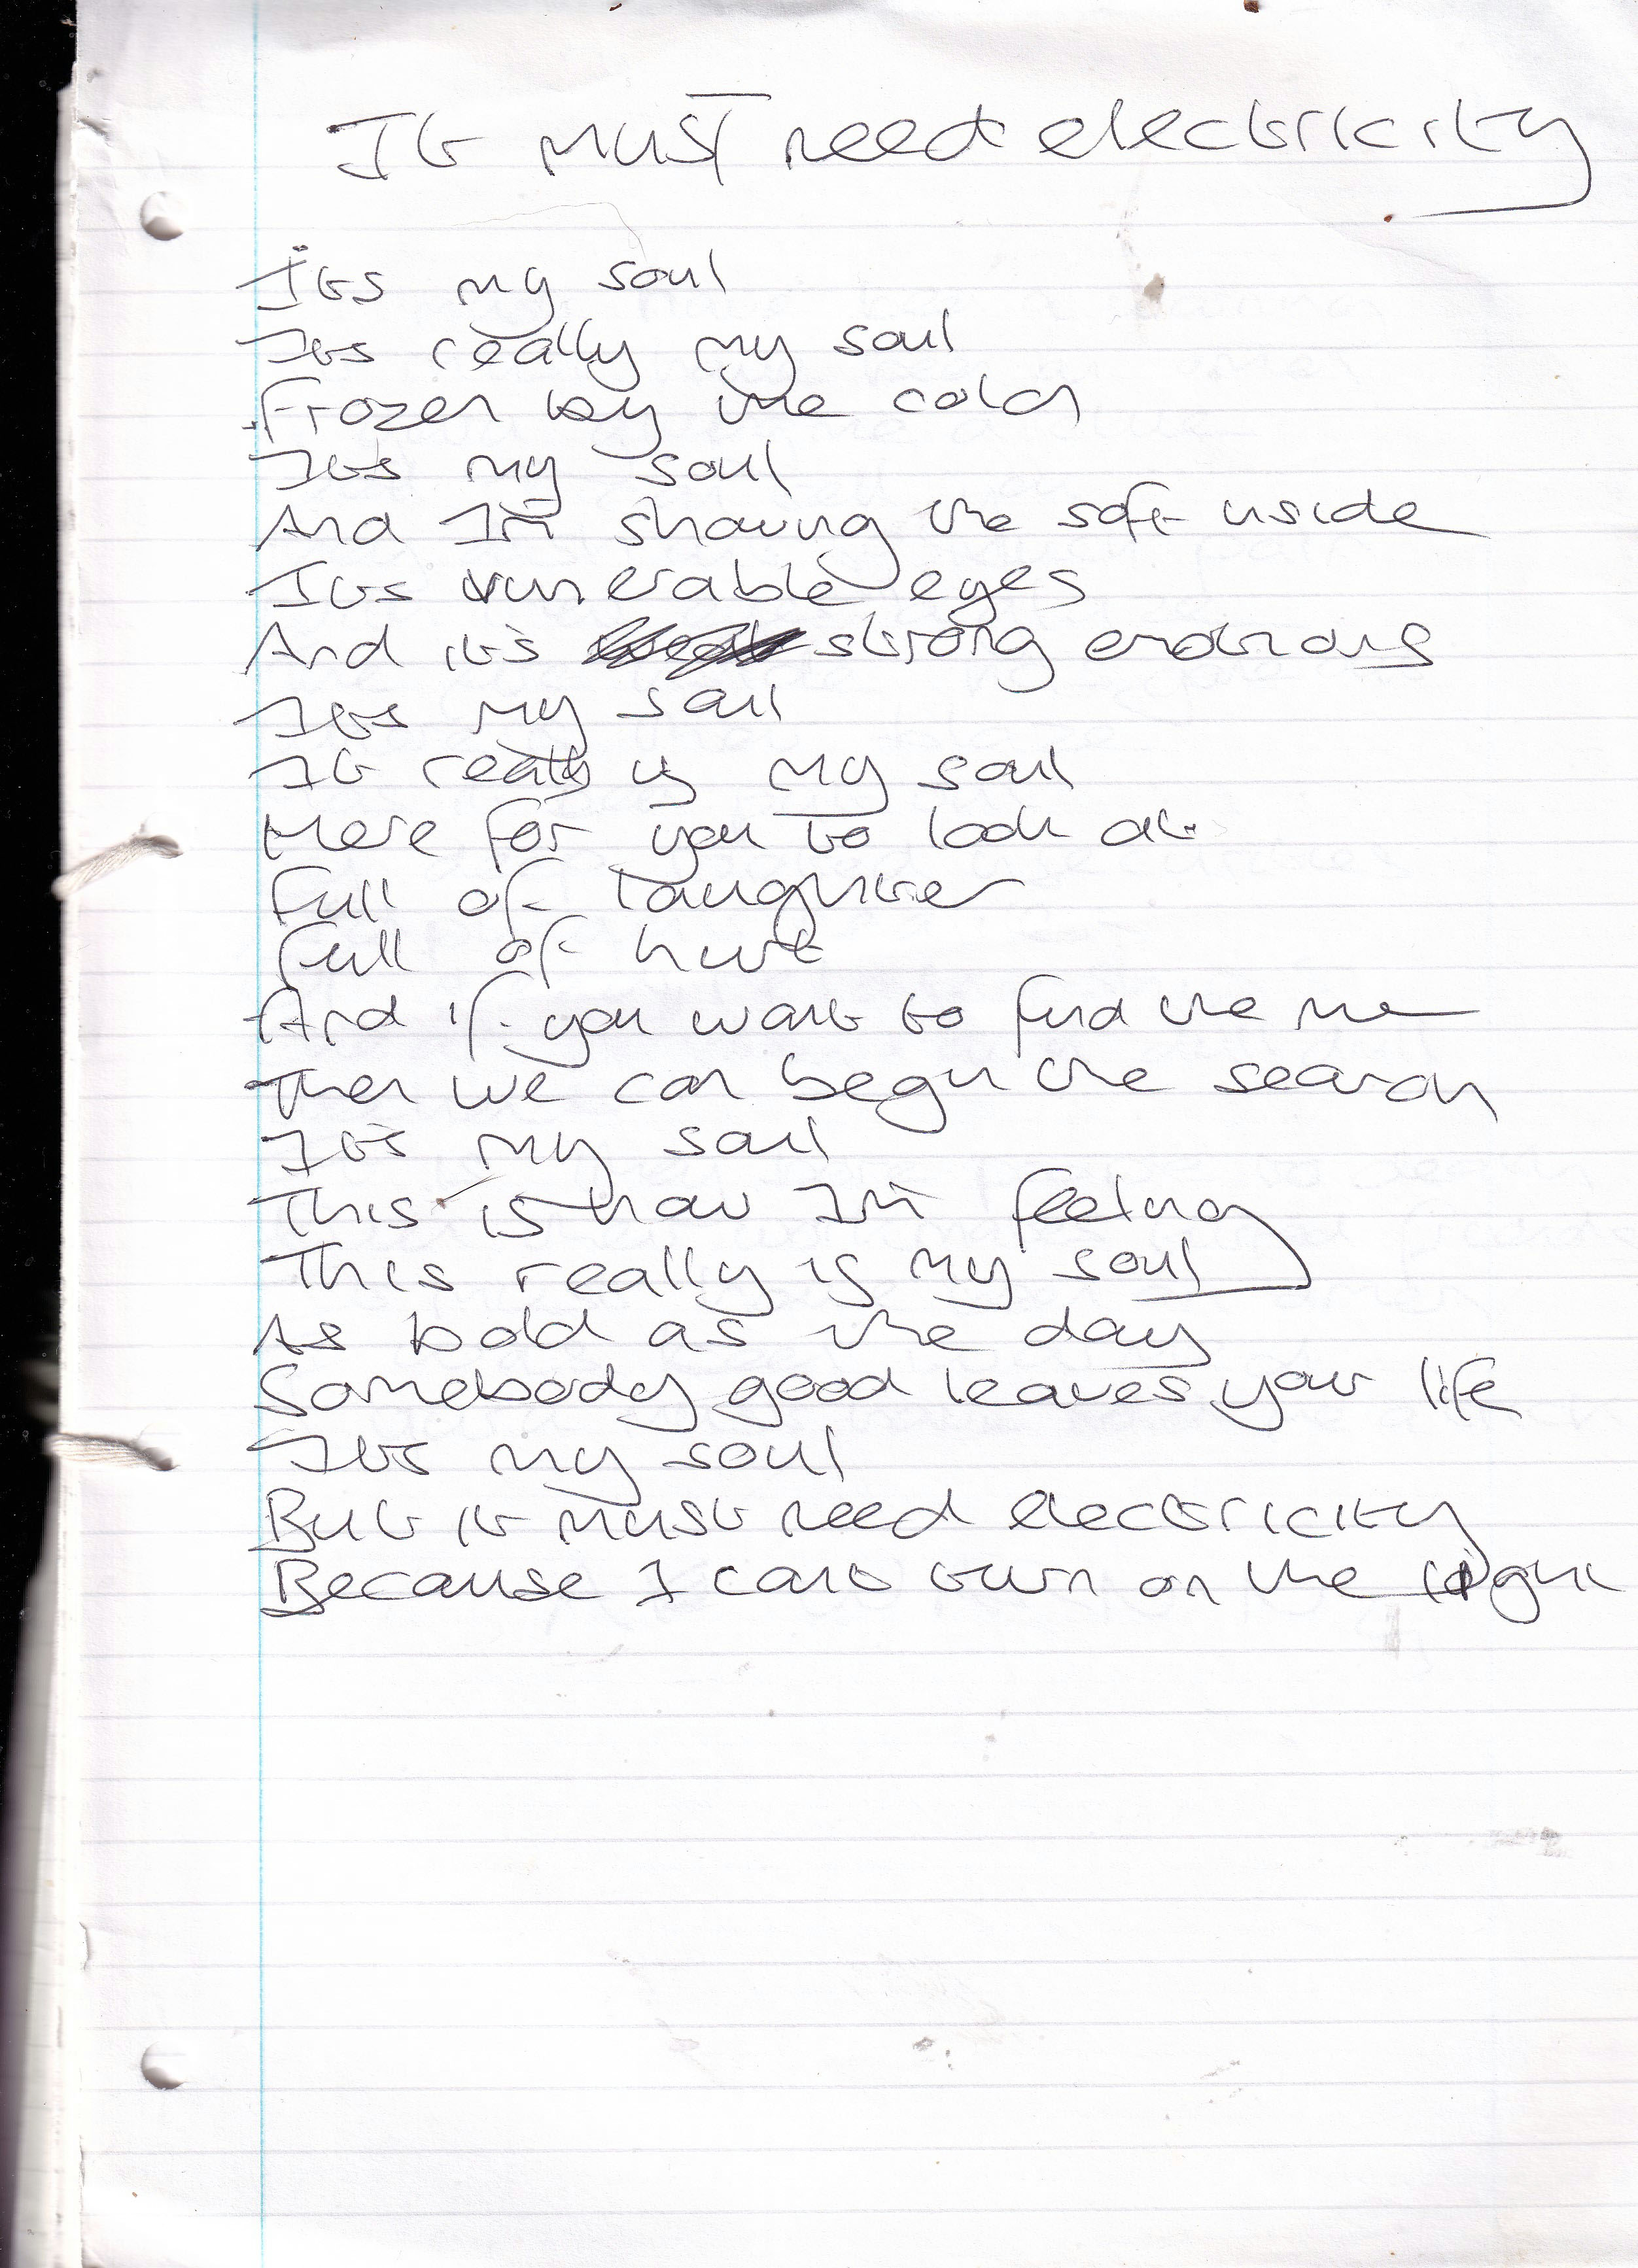 It must need electricity
Its my soul
Its really my soul
Frozen by the cold
Its my soul
And Im showing the soft inside
Its vunerable eyes
And it's strong emotions
Its my soul
It really is my soul
Here for you to look at
Full of laughter
Full of hurt
And if you want to find the me
Then we can begin the search
It's my soul
This is how I'm feeling
This really is my soul
As bold as the day
Somebody good leaves your life
Its my soul
But it must need electricity
Because I cant turn on the light